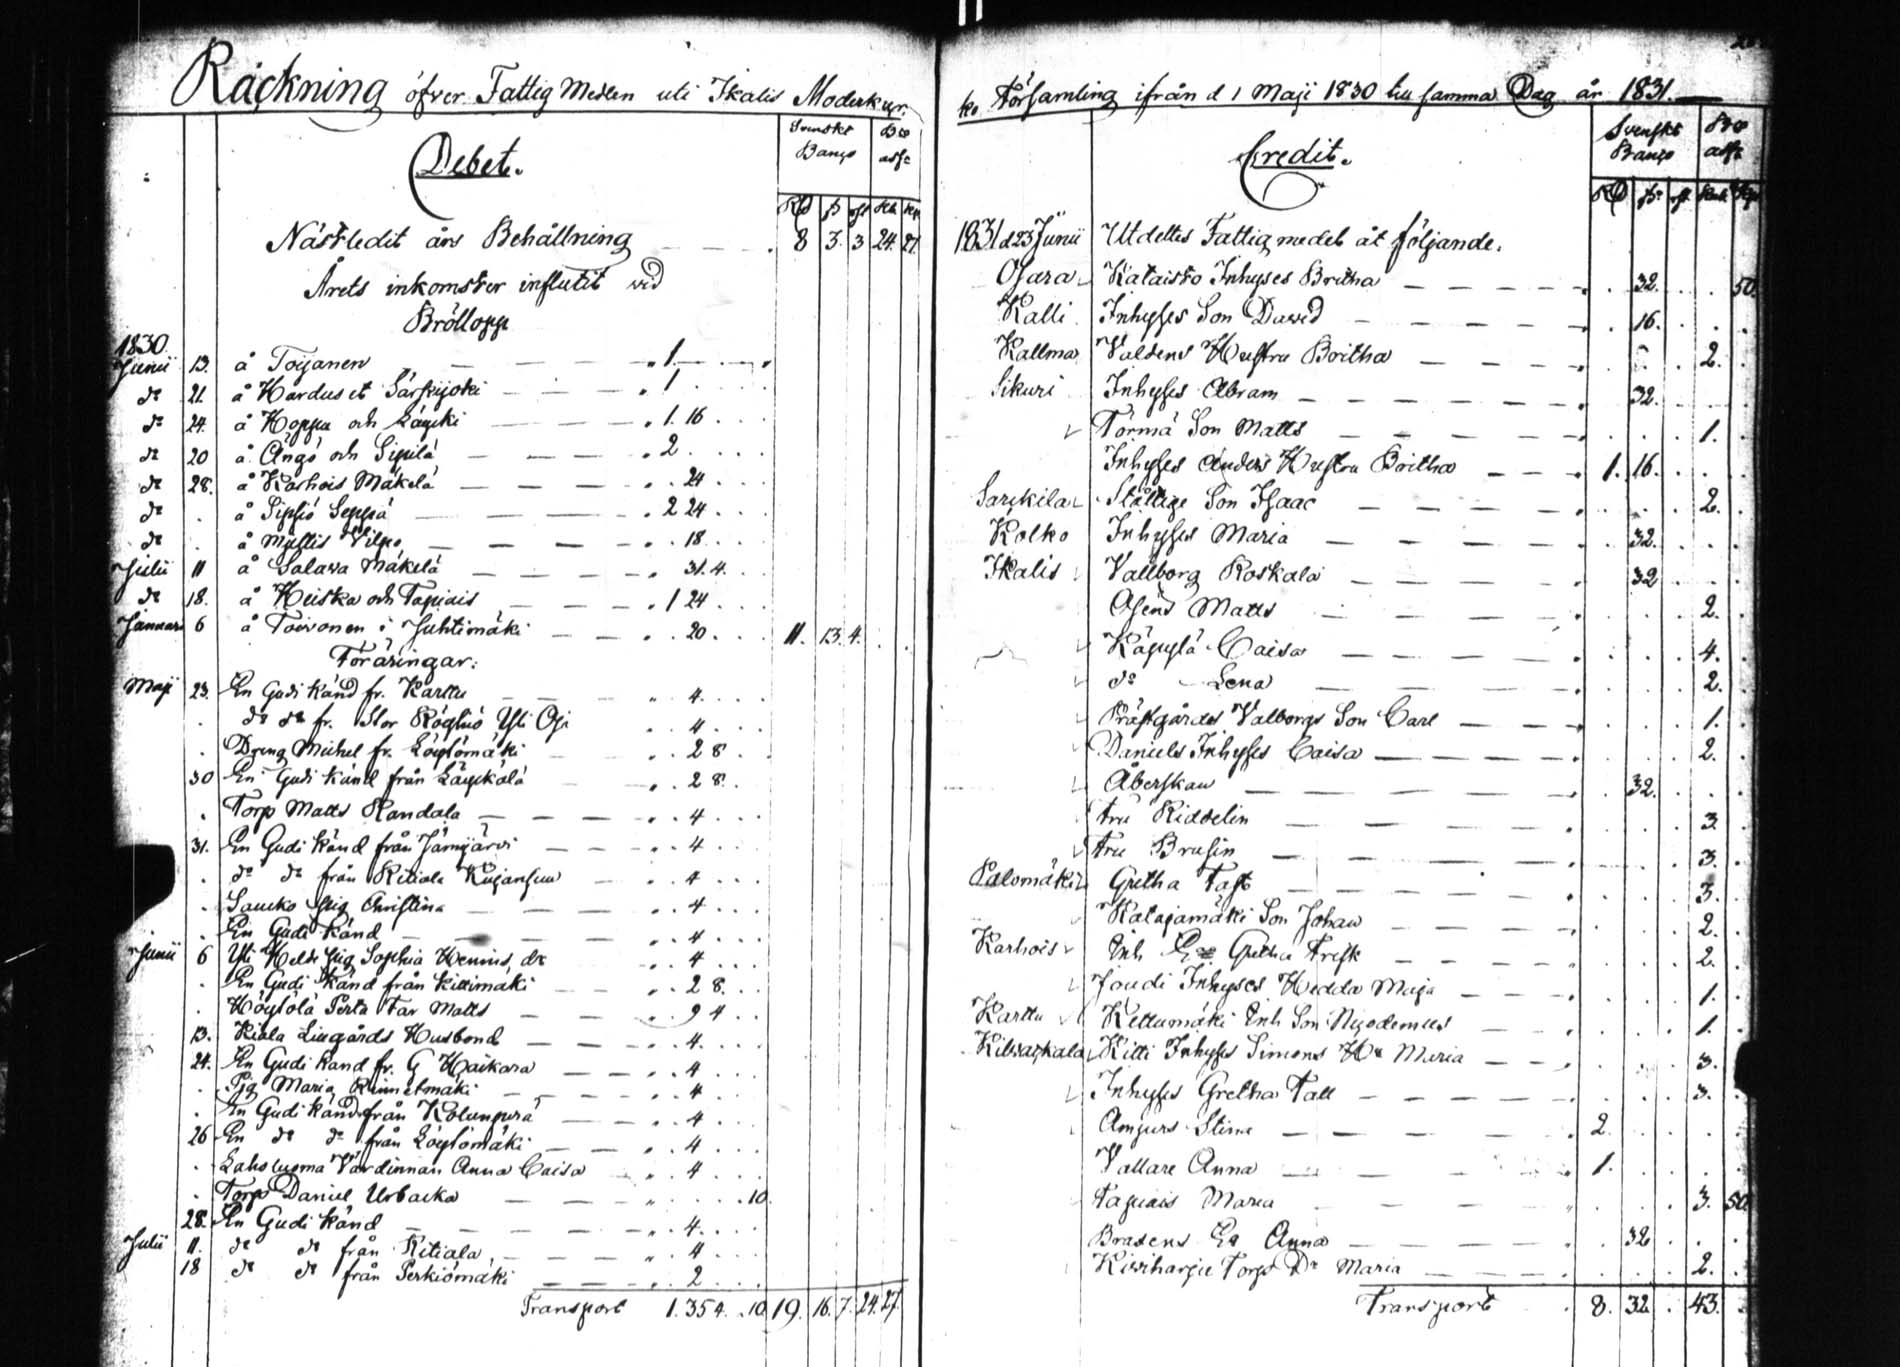 Räckning öfver Fattig Medlen uti Ikalis Moderkyr-
ko Församling ifrån d 1 Maji 1830 till samma Dag år 1831.
Debet.
Svenskt Banco
Bco
Rd ß rst Rub Kop
Nästledit års Behållning 8 3. 3 24. 27
Årets inkomster influtit vid
Bröllopp
1830.
Junii 13. å Toijanen 1
dº 21. å Harduset Särkijoki 1
dº 24. å Hoppu och 1. 16
dº 20 å Ängö och Sipilä 2
dº 28. å Karhois Mäkelä 24
dº å Sipsiö Seppä 2 24
dº å Myllis Vilpo 18
Julii 11 å Salawa Mäkelä 31. 4.
dº 18. å Heiska och Tapiais 1 24
Januari 6 å Toivonen i Juhtimäki 20 11. 13. 4.
Föräringar:
Maji 23. En Gudi känd fr. Karttu 4
dº dº fr. Stor Röyhiö Yli Oji 4
Dreng Michel fr. Löytömäki 2 8
30 En Gudi känd från 2 8
Torp Matts Kandala 4
31. En Gudi känd från Jämijärvi 4
dº dº från Kitiala 4
Christina 4
En Gudi känd 4
Junii 6 Yli Sophia 4
En Gudi känd från Kittimäki 2 8
Perta Far Matts 9 4
13. Kiala Husbond 4
24. En Gudi känd fr. G Haikara 4
Pig Maria Rimmetmäki 4
En Gudi känd från 4
26 En dº dº från Löytömäki 4
Laholuoma Värdinnan Anna Caisa 4
Torp Daniel Urbacka 10
28. En Gudi känd 4
Julii 11. dº dº från Kitiala 4
18 dº dº från Perkiömäki 2
Transport 1. 35 4. 10 19. 16. 7. 24. 27.
Credit.
Svenskt Banco
Bco
Rd ß rst Rub Kop
1831 d 23 Junii Utdeltes Fattigmedel åt följande.
Osara Kataisto Inhyses Britha 32. 50.
Kalli Inhyses Son David 16.
Kallma Valdens Hustru Britha 2.
Sikuri Inhyses Abram 32.
Törmä Son Matts 1.
Inhyses Anders Hustru Britha 1. 16.
Sarkila Ståltige Son Isaac 2.
Kolko Inhyses Maria 32.
Ikalis Vallborg Koskala 32
Aséns Matts 2.
Käpylä Caisa 4.
dº Lena 2.
Prästgårds Valborgs Son Carl 1.
Daniels Inhyses Caisa 2.
Åberskan 32.
Fru Riddelin 3.
Fru Brusin 3.
Palomäki Gretha Fast 3.
Katajamäki Son Johan 2.
Karhois Inh Gretha Frisk 2.
Joudi Inhyses Hedda Maja 1.
Karttu Kettumäki Inh Son Nicodemus 1.
Kilvackala Kilti Inhyses Simons Hu Maria 3.
Inhyses Gretha Fall 3.
Ampurs Stina 2.
Vallare Anna 1.
Tapiais Maria 3. 50.
Brasens Anna 32.
Kiviharju Torp Dr Maria 2.
Transport 8. 32. 43.